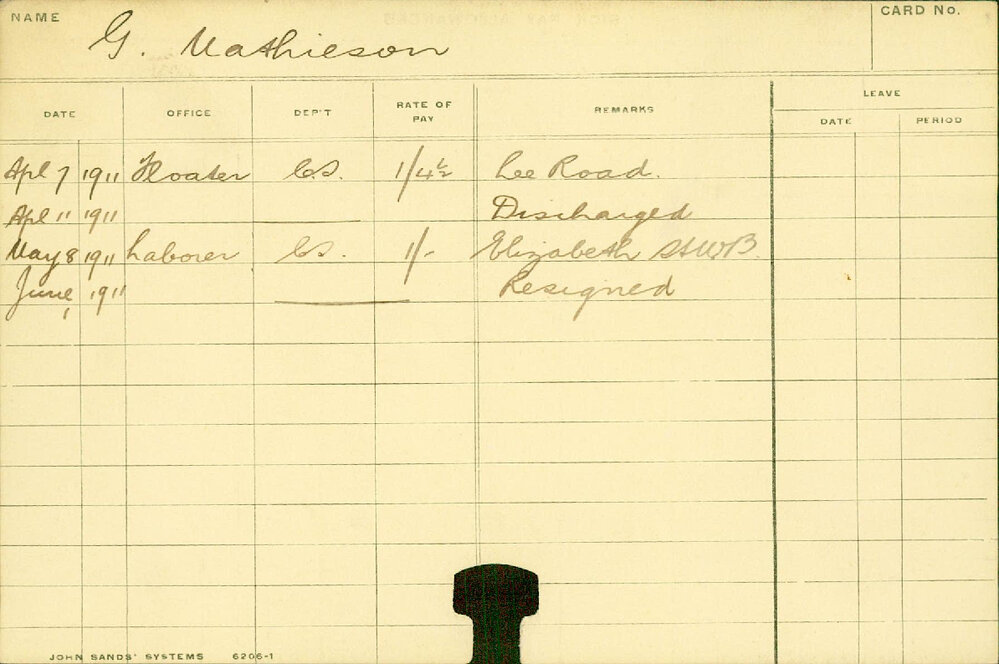 NAME
G. Mathieson
CARD No.
DATE OFFICE DEP'T RATE OF PAY REMARKS LEAVE
DATE PERIOD
Apl 7 1911 Floater C.S. 1/4½ Lee Road.
Apl 11 1911 Discharged
May 8 1911 Laborer C.S. 1/- Elizabeth St WB.
June 1 1911 Resigned
JOHN SANDS' SYSTEMS 6206-1